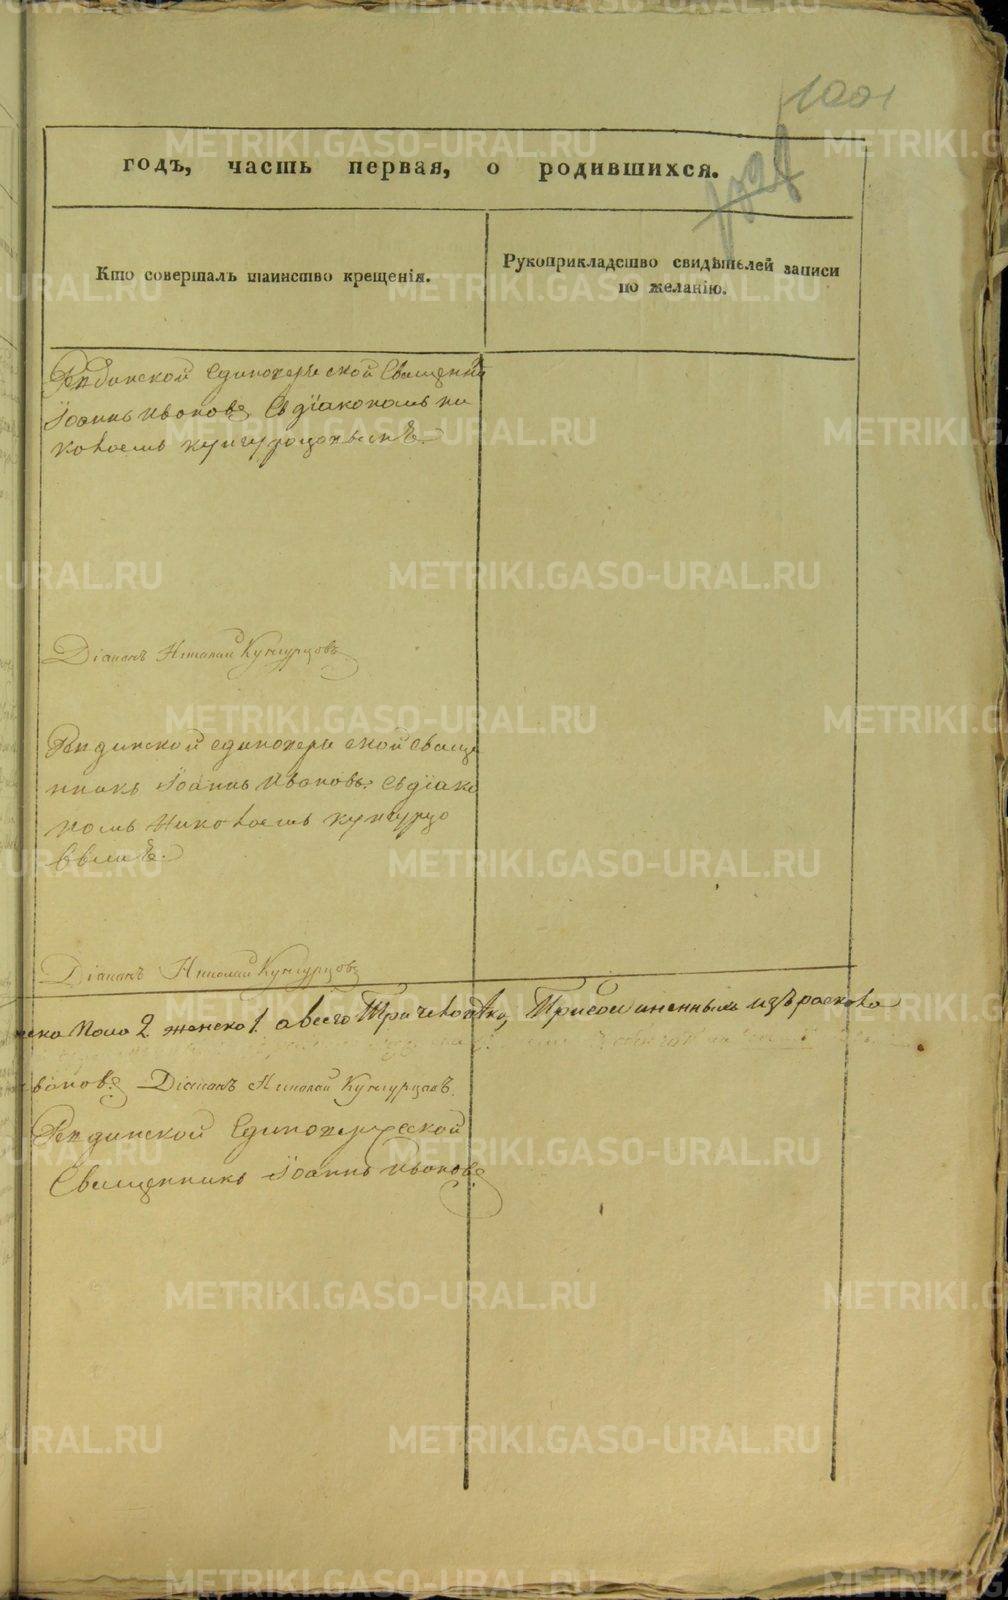 1001
годъ, часть первая, о родившихся.
Кто совершалъ таинство крещенія.
Рукоприкладство свидѣтелей записи
по желанію.
Единоверческой Священникъ
Іоаннъ Ивановъ Съ діакономъ Ни
колаемъ Кунгурцовымъ.
Діаконъ Николай Кунгурцовъ
единоверческой свяще
нникъ Іоаннъ Ивановъ Съ діако
номъ Николаемъ Кунгурцо
вымъ.
Діаконъ Николай Кунгурцовъ
ска пола 2 женска 1 а всего Три человѣка, Присоединенныхъ изъ раскола
вановъ Діаконъ Николай Кунгурцовъ.
Единоверческой
Священникъ Іоаннъ Ивановъ
METRIKI.GASO-URAL.RU